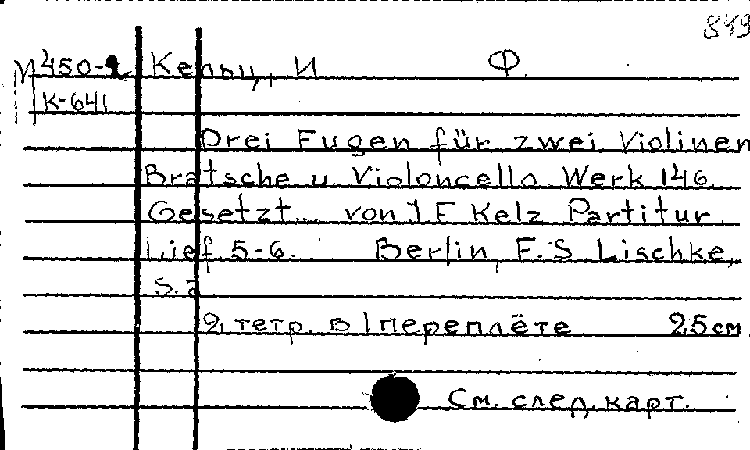 849
М 450-2 Кельц, И Ф.
К-641
Drei Fugen für zwei Violinen
Bratsche u Violoncello Werk 146
Gesetzt... von J F Kelz Partitur
Lief 5-6. Berlin, E.S Lischke,
S.a
2 тетр. в 1 переплёте 25 см
См. след. карт.